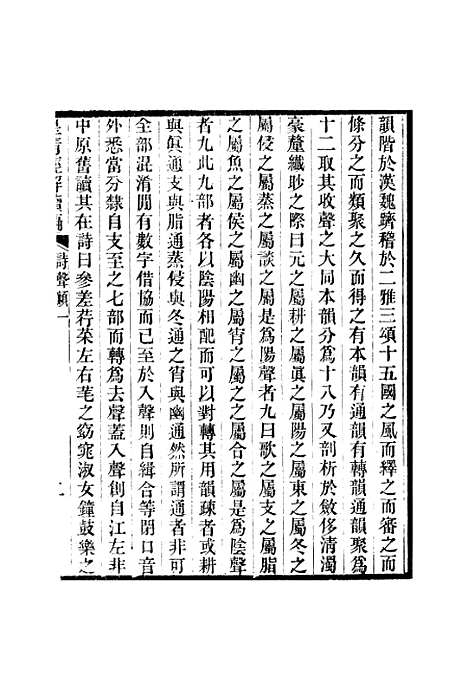 韻階於漢魏躋稽於二雅三頌十五國之風而釋之而審之而
條分之而類聚之久而得之有本韻有通韻有轉韻通韻聚為
十二取其收聲之大同本韻分為十八乃又剖析於斂侈清濁
豪釐纖眇之際曰元之屬耕之屬眞之屬陽之屬東之屬冬之
屬侵之屬蒸之屬談之屬是為陽聲者九曰歌之屬支之屬脂
之屬魚之屬侯之屬幽之屬宵之屬之之屬合之屬是為陰聲
者九此九部者各以陰陽相配而可以對轉其用韻疎者或耕
與眞通支與脂通蒸侵與冬通之宵與幽通然所謂通者非可
全部混淆閒有數字借協而已至於入聲則自緝合等閉口音
外悉當分隸自支至之七部而轉為去聲蓋入聲創自江左非
中原舊讀其在詩曰參差荇菜左右芼之窈窕淑女鐘鼓樂之
皇清經解續編
詩聲類一